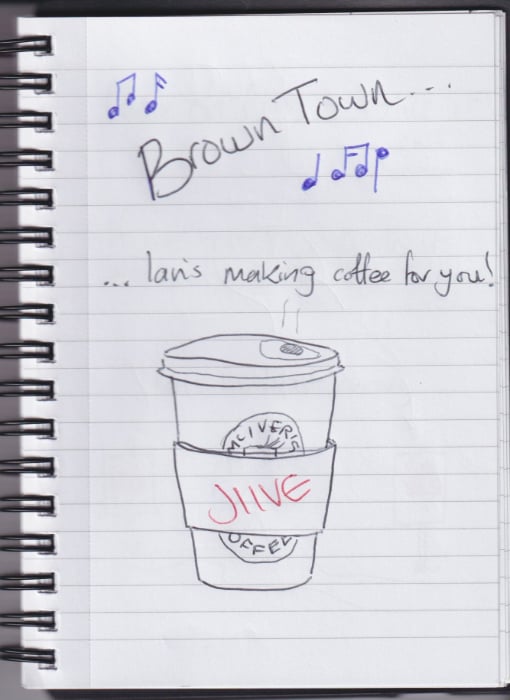 Brown Town...
... Ian's making coffee for you!
MCIVER'S
JIIVE
OFFEE